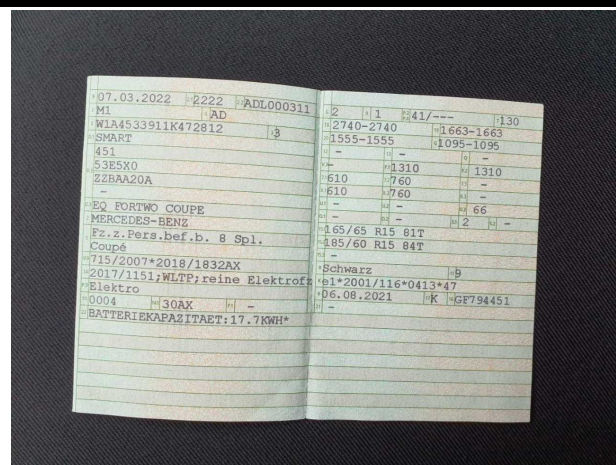 07.03.2022 2222 ADL000311
M1 AD
W1A4533911K472812 3
SMART
451
53E5X0
ZZBAA20A
-
EQ FORTWO COUPE
MERCEDES-BENZ
Fz.z.Pers.bef.b. 8 Spl.
Coupé
715/2007*2018/1832AX
2017/1151;WLTP;reine Elektrofz
Elektro
0004 30AX -
BATTERIEKAPAZITAET:17.7KWH*
2 1 41/--- 130
2740-2740 1663-1663
1555-1555 1095-1095
- - -
- 1310 1310
610 760 -
610 760 -
- - 66
- - 2 -
165/65 R15 81T
185/60 R15 84T
-
Schwarz 9
e1*2001/116*0413*47
06.08.2021 K GF794451
-